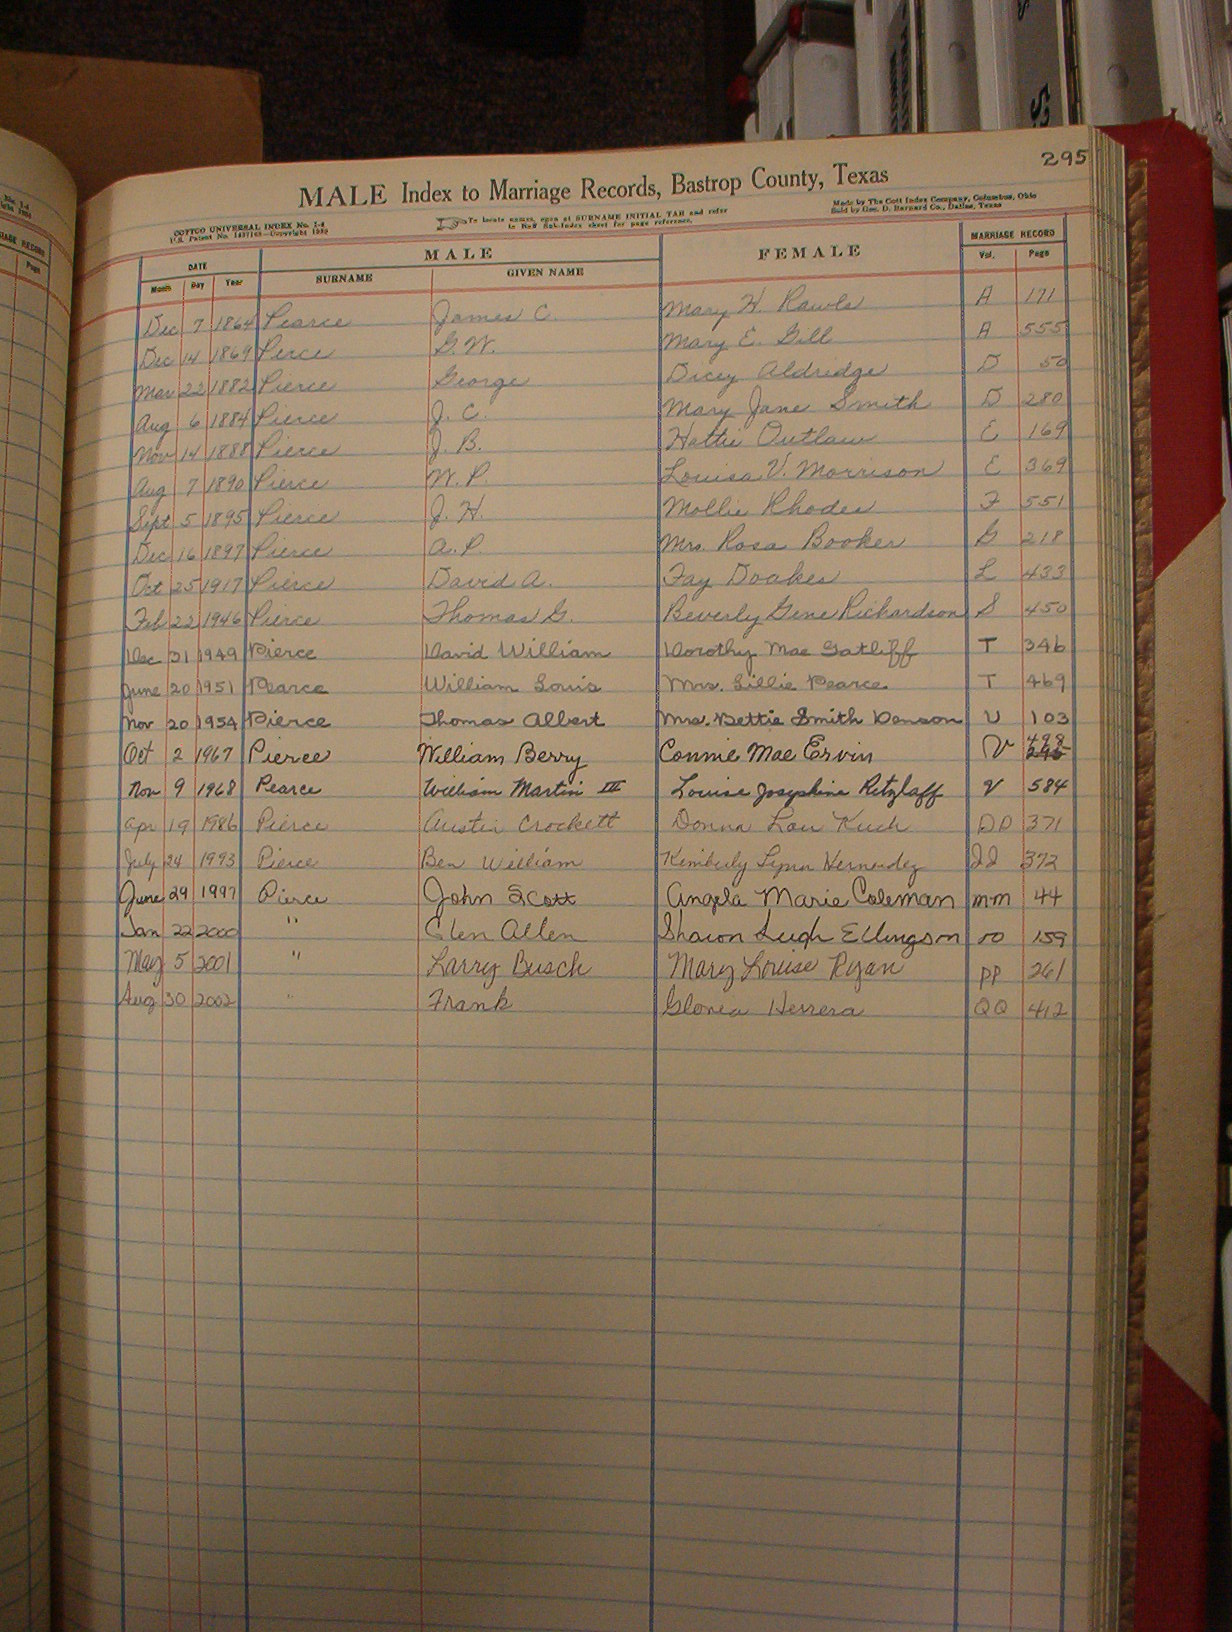 295
MALE Index to Marriage Records, Bastrop County, Texas
COTTCO UNIVERSAL INDEX No. 1-4
U.S. Patent No. Copyright
To locate names, open at SURNAME INITIAL TAB and refer
to Sub-Index sheet for page reference.
Made by The Cott Index Company, Columbus, Ohio
Sold by Geo. D. Barnard Co., Dallas, Texas
DATE MALE FEMALE MARRIAGE RECORD
Month Day Year SURNAME GIVEN NAME Vol. Page
Dec 7 1864 Pearce James C. Mary H. Rawls A 171
Dec 14 1869 Perce G. W. Mary E. Gill A 555
Mar 22 1882 Pierce George Dicey Aldridge D 50
Aug 6 1884 Pierce J. C. Mary Jane Smith D 280
Nov 14 1888 Pierce J. B. Hattie Outlaw E 169
Aug 7 1890 Pierce W. P. Louisa V. Morrison E 369
Sept 5 1895 Pierce J. H. Mollie Rhodes F 551
Dec 16 1897 Pierce A. P. Mrs. Rosa Booker G 218
Oct 25 1917 Pierce David A. Fay Doakes L 433
Feb 22 1946 Pierce Thomas G. Beverly Gene Richardson S 450
Dec 31 1949 Pierce David William Dorothy Mae Gatliff T 346
June 20 1951 Pearce William Louis Mrs. Lillie Pearce T 469
Nov 20 1954 Pierce Thomas Albert Mrs. Bettie Smith Denson U 103
Oct 2 1967 Pierce William Berry Connie Mae Ervin V 498
Nov 9 1968 Pearce William Martin III Louise Josephine Ritzlaff V 584
Apr 19 1986 Pierce Austin Crockett Donna Lou Kuch DD 371
July 24 1993 Pierce Ben William Kimberly Lynn Hernandez JJ 372
June 29 1997 Pierce John Scott Angela Marie Coleman mm 44
Jan 22 2000 " Glen Allen Sharon Leigh Ellingson oo 159
May 5 2001 " Larry Busch Mary Louise Ryan PP 261
Aug 30 2002 " Frank Glorea Herrera QQ 412